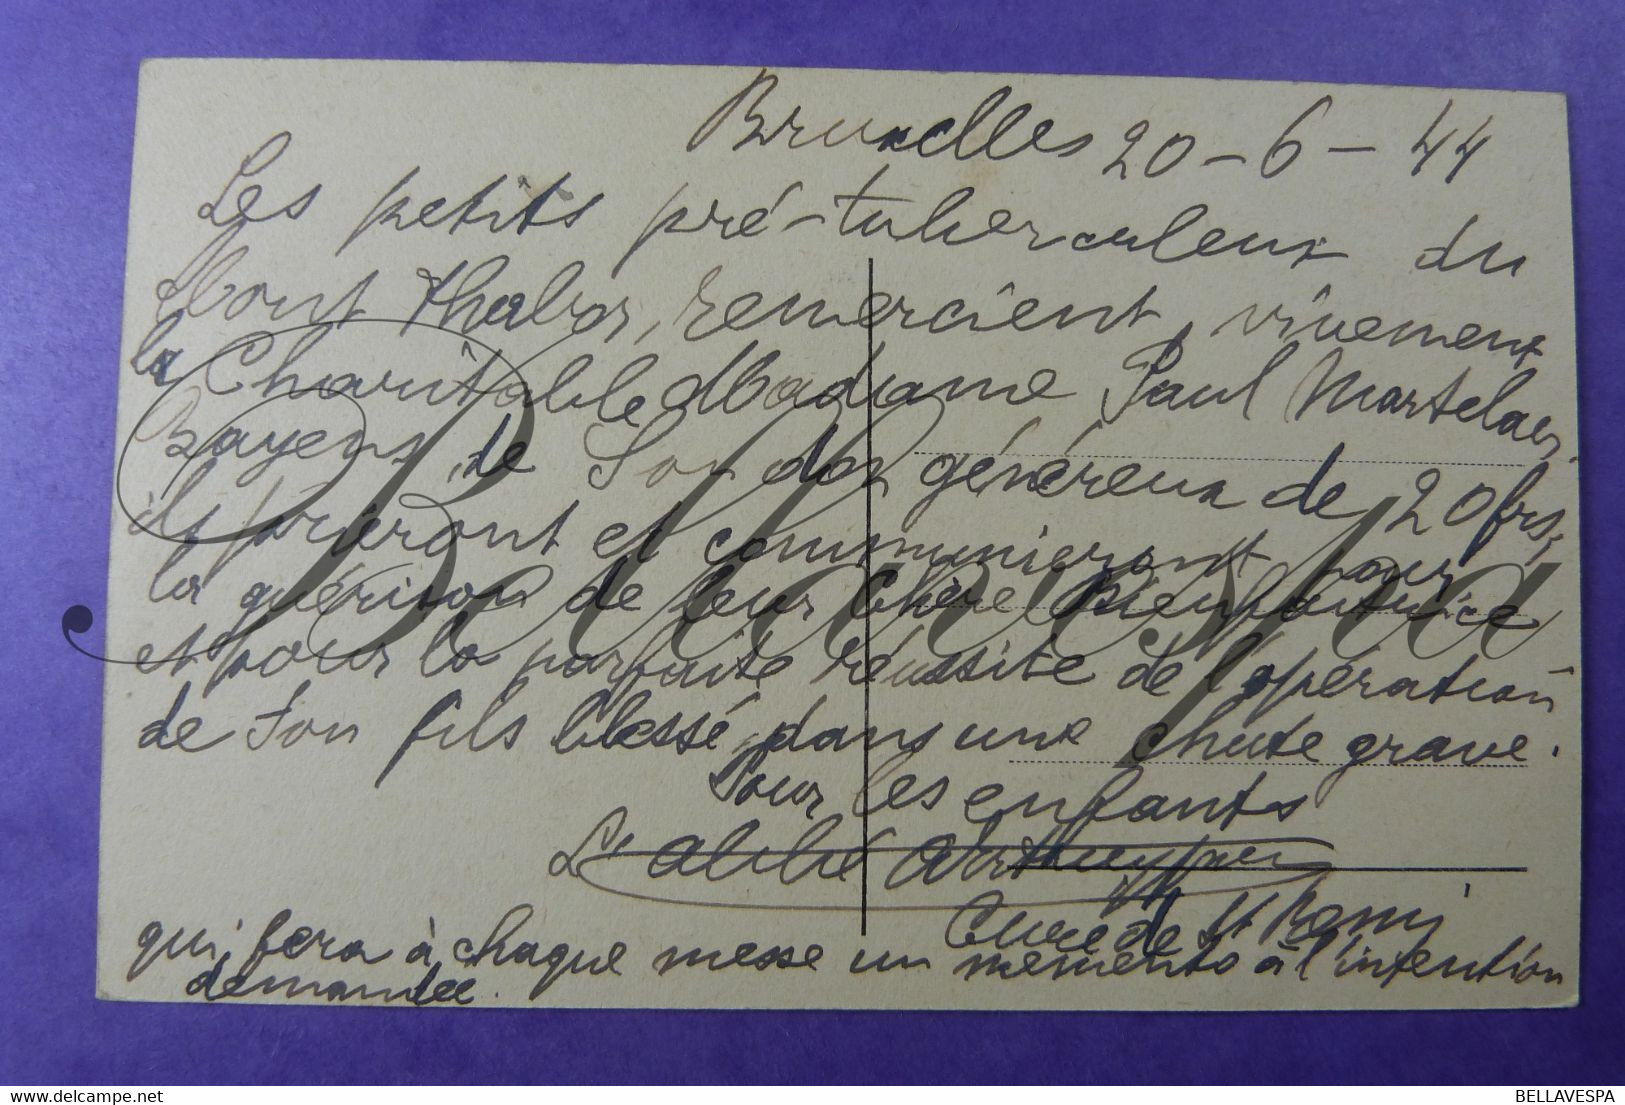 Bruxelles 20-6-44
Les petits pré-tuberculeux du
Mont Thabor, remercient vivement
la Charitable Madame Paul Martelaer
Bayens de Son don généreux de 20 frs,
ils prieront et communieront pour
la guérison de leur Chère Bienfaitrice
et pour la parfaite réussite de l'opération
de Son fils blessé dans une chute grave.
Pour les enfants
L'abbé
Curé de St Remi
qui fera à chaque messe un memento à l'intention
demandée.
Bellavespa
BELLAVESPA